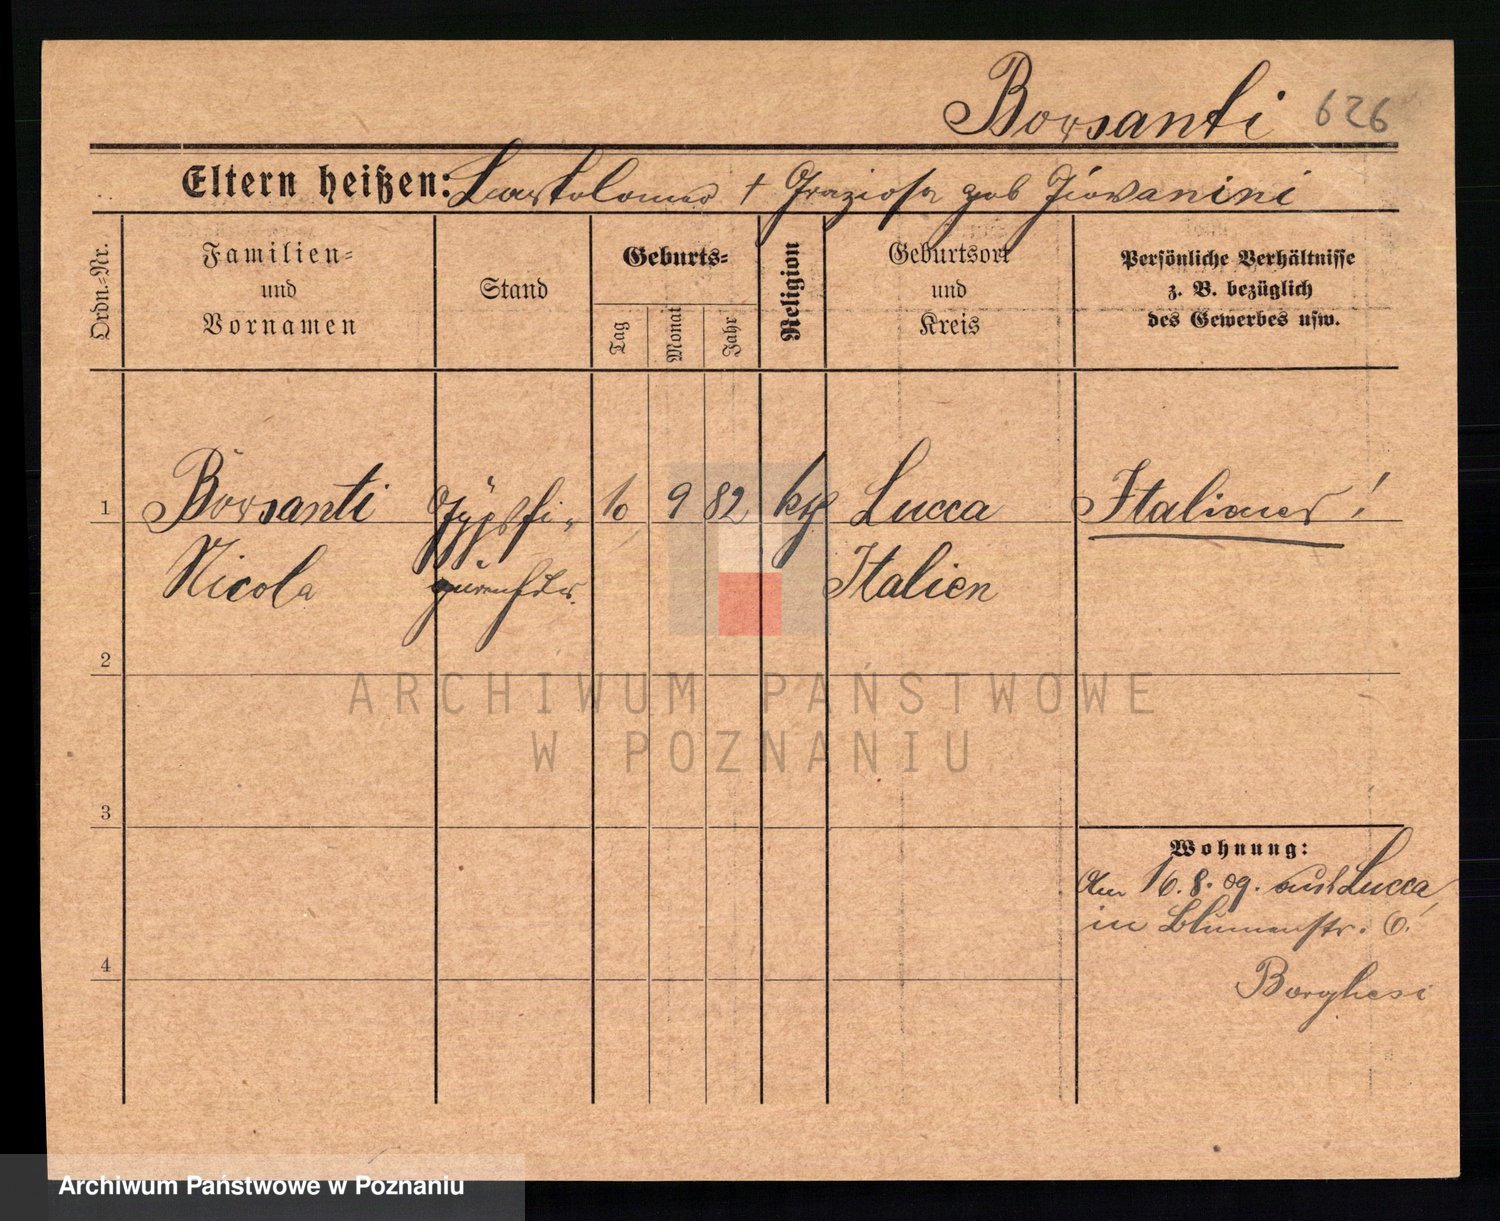 Borsanti 626
Eltern heißen: Bartolomeo + Graziosa geb Giovanini
Ordn.-Nr.
Familien-
und
Vornamen
Stand
Geburts-
Tag
Monat
Jahr
Religion
Geburtsort
und
Kreis
Persönliche Verhältnisse
z. B. bezüglich
des Gewerbes usw.
1 Borsanti Gypsfi- 10 9 82 kth Lucca Italiener!
Nicola gurenhdlr. Italien
2
ARCHIWUM PAŃSTWOWE
W POZNANIU
3
Wohnung:
Am 16.8.09. aus Lucca,
in Blumenstr. 6!
4
Borghesi
Archiwum Państwowe w Poznaniu